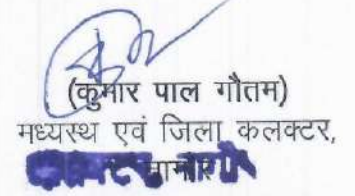 (कुमार पाल गौतम)
मध्यस्थ एवं जिला कलक्टर,